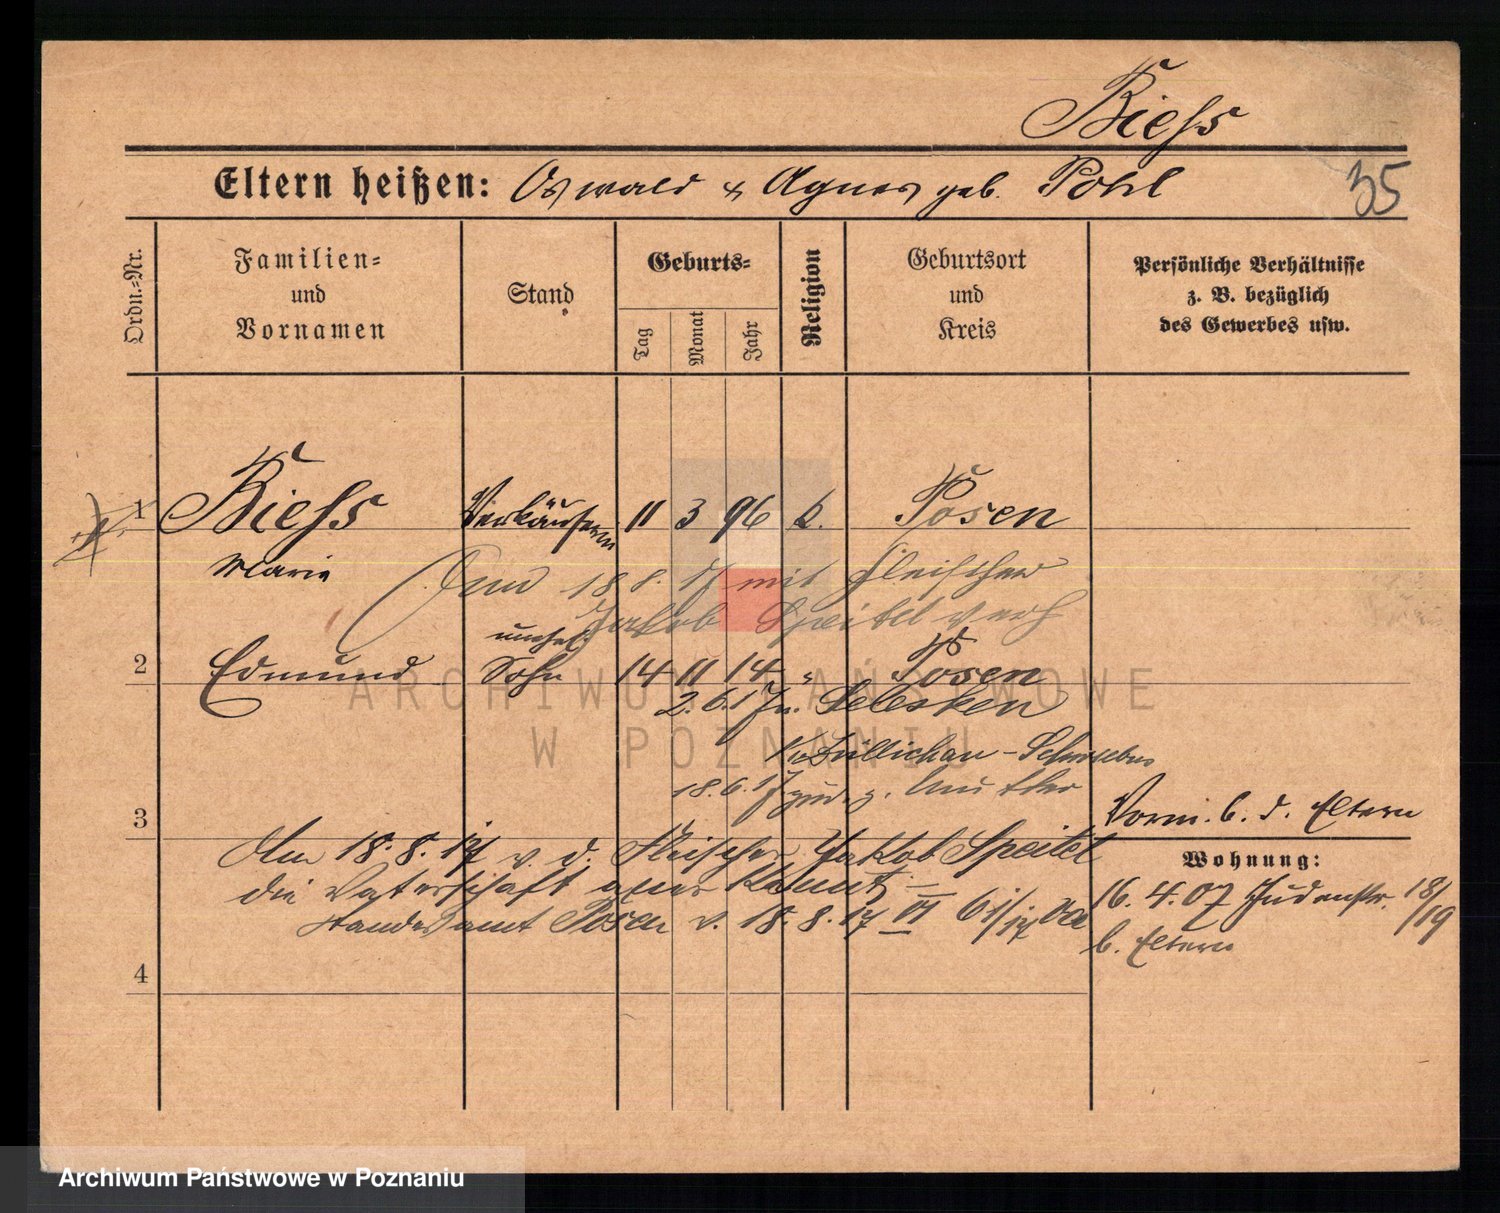 Biehs
Eltern heißen: Oswald & Agnes geb. Pohl
35
Ordn.=Nr.
Familien=
und
Vornamen
Stand
Geburts=
Tag
Monat
Jahr
Religion
Geburtsort
und
Kreis
Persönliche Verhältnisse
z. B. bezüglich
des Gewerbes usw.
1 Biehs Verkäuferin 11 3 96 k. Posen
Marie
18 8. 17 mit Fleischer
Jakob Speitel verh
unehel.
2 Edmund Sohn 14 11 14 " Posen
2. 6. 17 n.
Züllichau - Schwiebus
18. 6. 17 zur. z. Mutter
3
Vorm. b. d. Eltern
Am 18. 8. 17 v. d. Fleischer Jakob Speitel
die Vaterschaft anerkannt
Standesamt Posen v. 18. 8. 17 VI
Wohnung:
16. 4. 07 Judenstr. 18/19
b. Eltern
4
ARCHIWUM PAŃSTWOWE
W POZNANIU
Archiwum Państwowe w Poznaniu